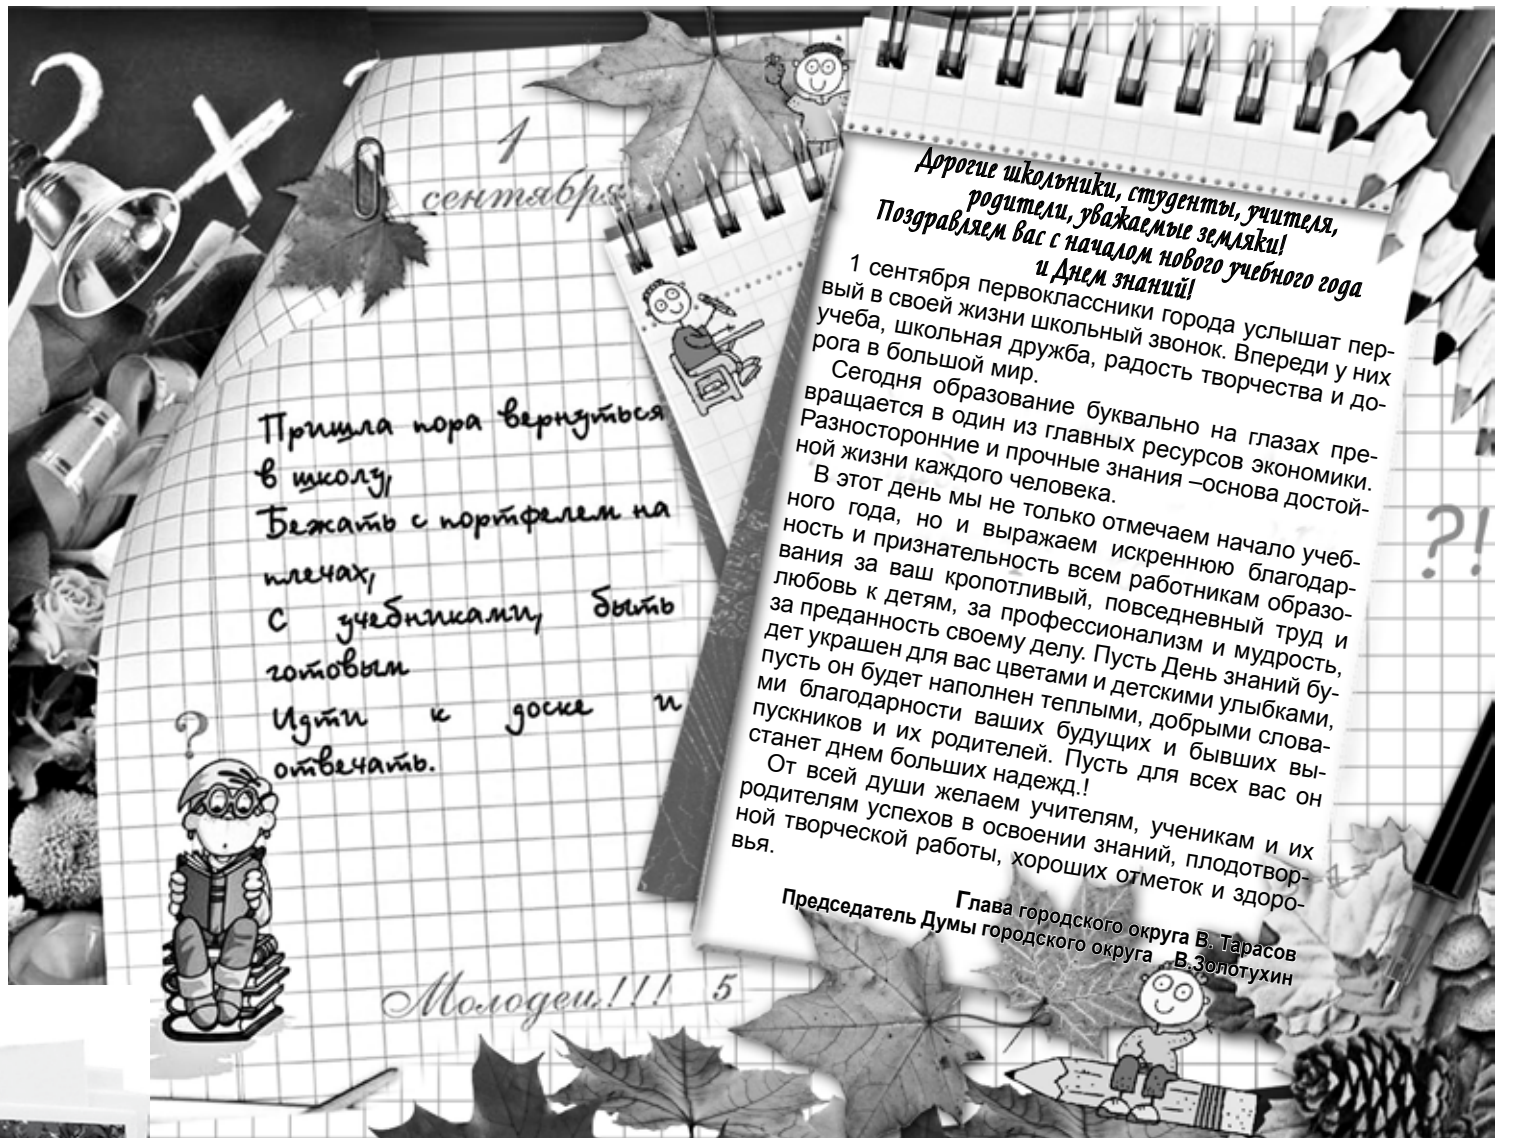 2 х
1
сентября
Пришла пора вернуться
в школу,
Бежать с портфелем на
плечах,
С учебниками, быть
готовым
Идти к доске и
отвечать.
?
Молодец!!! 5
Дорогие школьники, студенты, учителя,
родители, уважаемые земляки!
Поздравляем вас с началом нового учебного года
и Днем знаний!
1 сентября первоклассники города услышат пер-
вый в своей жизни школьный звонок. Впереди у них
учеба, школьная дружба, радость творчества и до-
рога в большой мир.
Сегодня образование буквально на глазах пре-
вращается в один из главных ресурсов экономики.
Разносторонние и прочные знания –основа достой-
ной жизни каждого человека.
В этот день мы не только отмечаем начало учеб-
ного года, но и выражаем искреннюю благодар-
ность и признательность всем работникам образо-
вания за ваш кропотливый, повседневный труд и
любовь к детям, за профессионализм и мудрость,
за преданность своему делу. Пусть День знаний бу-
дет украшен для вас цветами и детскими улыбками,
пусть он будет наполнен теплыми, добрыми слова-
ми благодарности ваших будущих и бывших вы-
пускников и их родителей. Пусть для всех вас он
станет днем больших надежд.!
От всей души желаем учителям, ученикам и их
родителям успехов в освоении знаний, плодотвор-
ной творческой работы, хороших отметок и здоро-
вья.
Глава городского округа В. Тарасов
Председатель Думы городского округа В.Золотухин
?!